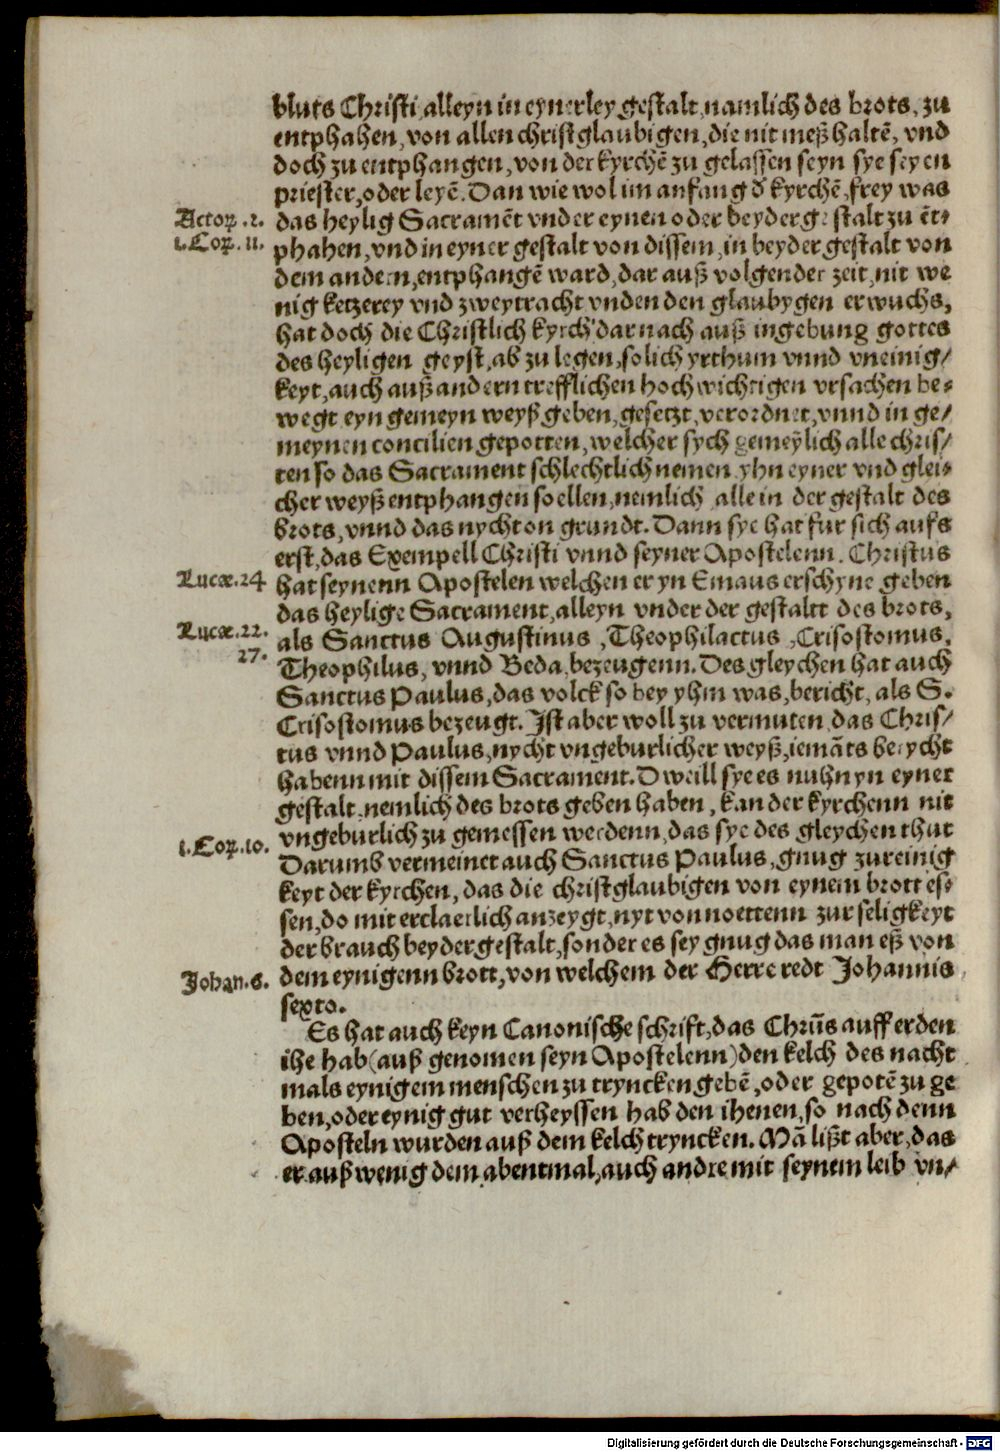 bluts Christi alleyn in eynerley gestalt, namlich des brots, zu
entphahen, von allen christglaubigen, die nit meß haltē, vnd
doch zu entphangen, von der kyrchē zu gelassen seyn sye seyen
priester, oder leyē. Dan wie wol im anfang d' kyrchē, frey was
Actoꝝ .2. das heylig Sacramēt vnder eynen oder beyder gestalt zu ēt-
1. Coꝝ. 11. phahen, vnd in eyner gestalt von dissem, in beyder gestalt von
dem andern, entphangē ward, dar auß volgender zeit, nit we
nig ketzerey vnd zweytracht vnden den glaubygen erwuchs,
hat doch die Christlich kyrch dar nach auß ingebung gottes
des heyligen geyst, ab zu legen, solich yrthum vnnd vneinig/
keyt, auch auß andern trefflichen hochwichtigen vrsachen be-
wegt eyn gemeyn weyß geben, gesetzt, verordnet, vnnd in ge/
meynen concilien gepotten, welcher sych gemeylich alle chris/
ten so das Sacrament schlechtlich nemen yhn eyner vnd glei-
cher weyß entphangen soellen, nemlich allein der gestalt des
brots, vnnd das nycht on grundt. Dann sye hat fur sich aufs
erst, das Exempell Christi vnnd seyner Apostelenn. Christus
Lucæ. 24 hat seynenn Apostelen welchen er yn Emaus erschyne geben
das heylige Sacrament, alleyn vnder der gestaltt des brots,
Lucæ. 22. als Sanctus Augustinus, Theophilactus, Crisostomus,
27. Theophilus, vnnd Beda, bezeugenn. Des gleychen hat auch
Sanctus Paulus, das volck so bey yhm was, bericht, als S.
Crisostomus bezeugt. Ist aber woll zu vermuten das Chris/
tus vnnd Paulus, nycht vngeburlicher weyß, iemāts berycht
habenn mit dissem Sacrament. Dweill sye es nuhn yn eyner
gestalt, nemlich des brots geben haben, kan der kyrchenn nit
1. Coꝝ. 10. vngeburlich zu gemessen werdenn, das sye des gleychen thut
Darumb vermeinet auch Sanctus Paulus, gnug zureinig
keyt der kyrchen, das die christglaubigen von eynem brott es-
sen, do mit erclaerlich anzeygt, nyt von noettenn zur seligkeyt
der brauch beyder gestalt, sonder es sey gnug das man eß von
Johan. 6. dem eynigenn brott, von welchem der Herre redt Johannis
sexto.
Es hat auch keyn Canonische schrift, das Chrūs auff erden
ihe hab (auß genomen seyn Apostelenn) den kelch des nacht
mals eynigem menschen zu tryncken gebē, oder gepotē zu ge
ben, oder eynig gut verheyssen hab den ihenen, so nach denn
Aposteln wurden auß dem kelch tryncken. Mā lißt aber, das
er auß wenig dem abentmal, auch andre mit seynem leib vn/
Digitalisierung gefördert durch die Deutsche Forschungsgemeinschaft - DFG